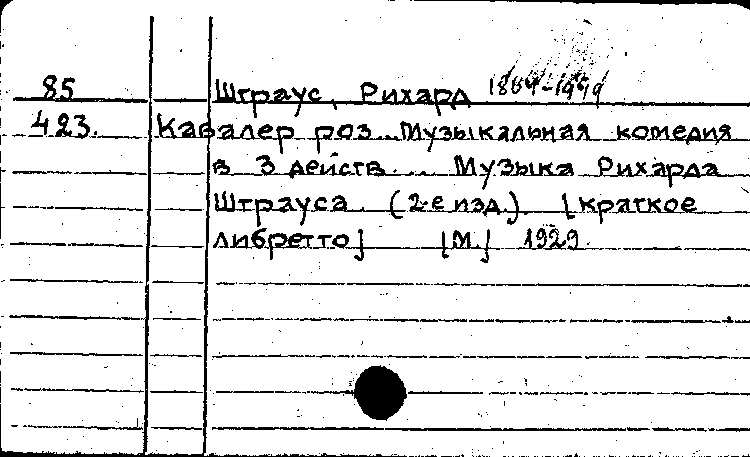 85 Штраус, Рихард 1864-1949
423. Кавалер роз... Музыкальная комедия
в 3 действ... Музыка Рихарда
Штрауса. (2-е изд.). [краткое
либретто] [М.] 1929.